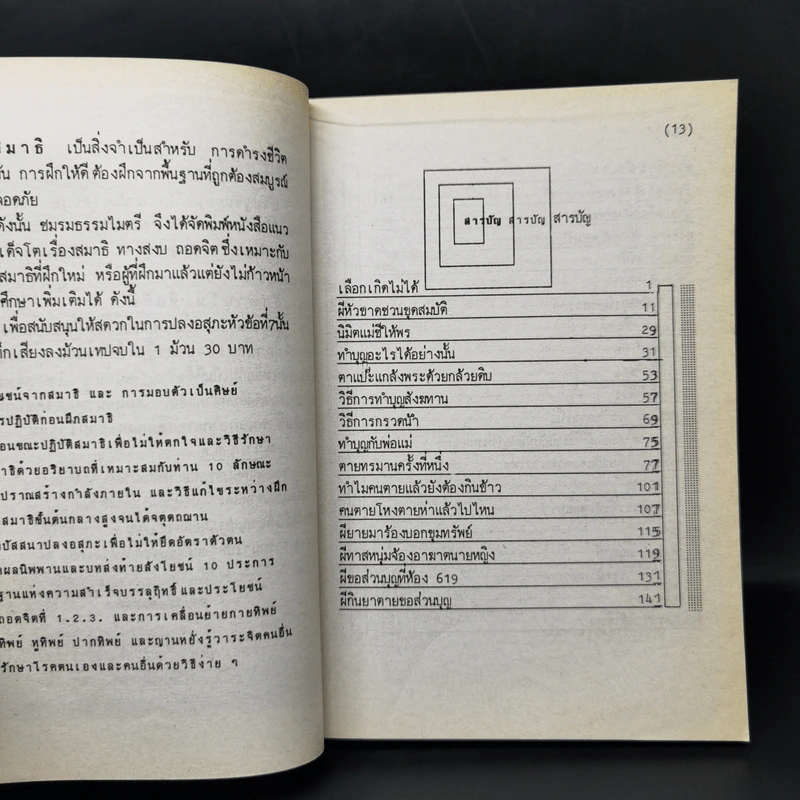 สมาธิ เป็นสิ่งจำเป็นสำหรับ การดำรงชีวิต
การฝึกให้ดี ต้องฝึกจากพื้นฐานที่ถูกต้องสมบูรณ์
ดังนั้น ชมรมธรรมไมตรี จึงได้จัดพิมพ์หนังสือแนว
เรื่องสมาธิ ทางสงบ ถอดจิต ซึ่งเหมาะกับ
สมาธิที่ฝึกใหม่ หรือผู้ที่ฝึกมาแล้วแต่ยังไม่ก้าวหน้า
ศึกษาเพิ่มเติมได้ ดังนี้
เพื่อสนับสนุนให้สดวกในการปลงอสุภะหัวข้อที่7นั้น
เสียงลงม้วนเทปจบใน 1 ม้วน 30 บาท
จากสมาธิ และ การมอบตัวเป็นศิษย์
ปฏิบัติก่อนฝึกสมาธิ
ขณะปฏิบัติสมาธิเพื่อไม่ให้ตกใจและวิธีรักษา
ด้วยอริยาบถที่เหมาะสมกับท่าน 10 ลักษณะ
สร้างกำลังภายใน และวิธีแก้ไขระหว่างฝึก
สมาธิขั้นต้นกลางสูงจนได้จตุตถฌาน
ปลงอสุภะเพื่อไม่ให้ยึดอัตราตัวตน
ผลนิพพานและบทส่งท้ายสังโยชน์ 10 ประการ
ฐานแห่งความสำเร็จบรรลุฤทธิ์และประโยชน์
ถอดจิตที่ 1.2.3. และการเคลื่อนย้ายกายทิพย์
หูทิพย์ ปากทิพย์ และญานหยั่งรู้วาระจิตคนอื่น
รักษาโรคตนเองและคนอื่นด้วยวิธีง่าย ๆ
(13)
สารบัญ สารบัญ สารบัญ
เลือกเกิดไม่ได้ 1
ผีหัวขาดชวนขุดสมบัติ 11
นิมิตแม่ชีให้พร 29
ทำบุญอะไรได้อย่างนั้น 31
ตาแป๊ะแกล้งพระด้วยกล้วยดิบ 53
วิธีการทำบุญสังฆทาน 57
วิธีการกรวดน้ำ 69
ทำบุญกับพ่อแม่ 75
ตายทรมานครั้งที่หนึ่ง 77
ทำไมคนตายแล้วยังต้องกินข้าว 101
คนตายโหงตายห่าแล้วไปไหน 107
ผียายมาร้องบอกขุมทรัพย์ 115
ผีทาสหนุ่มจ้องอาฆาตนายหญิง 119
ผีขอส่วนบุญที่ห้อง 619 131
ผีกินยาตายขอส่วนบุญ 141